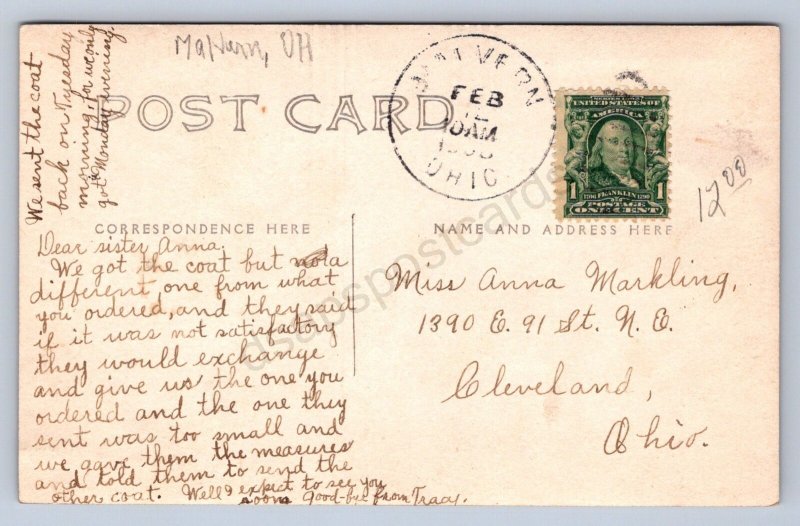 Malvern, OH
We sent the coat
back on Tuesday
morning, for we only
got Monday evening.
POST CARD
MALVERN
FEB
10AM
OHIO
SERIES 1902
UNITED STATES OF
AMERICA
1 1706 FRANKLIN 1790 1
POSTAGE
ONE CENT
12.00
CORRESPONDENCE HERE
NAME AND ADDRESS HERE
Dear sister Anna.
We got the coat but a
different one from what
you ordered, and they said
if it was not satisfactory
they would exchange
and give us the one you
ordered and the one they
sent was too small and
we gave them the measures
and told them to send the
other coat. Well I expect to see you
soon good-bye from Tracy.
Miss Anna Markling,
1390 E. 91 St. N. E.
Cleveland,
Ohio.